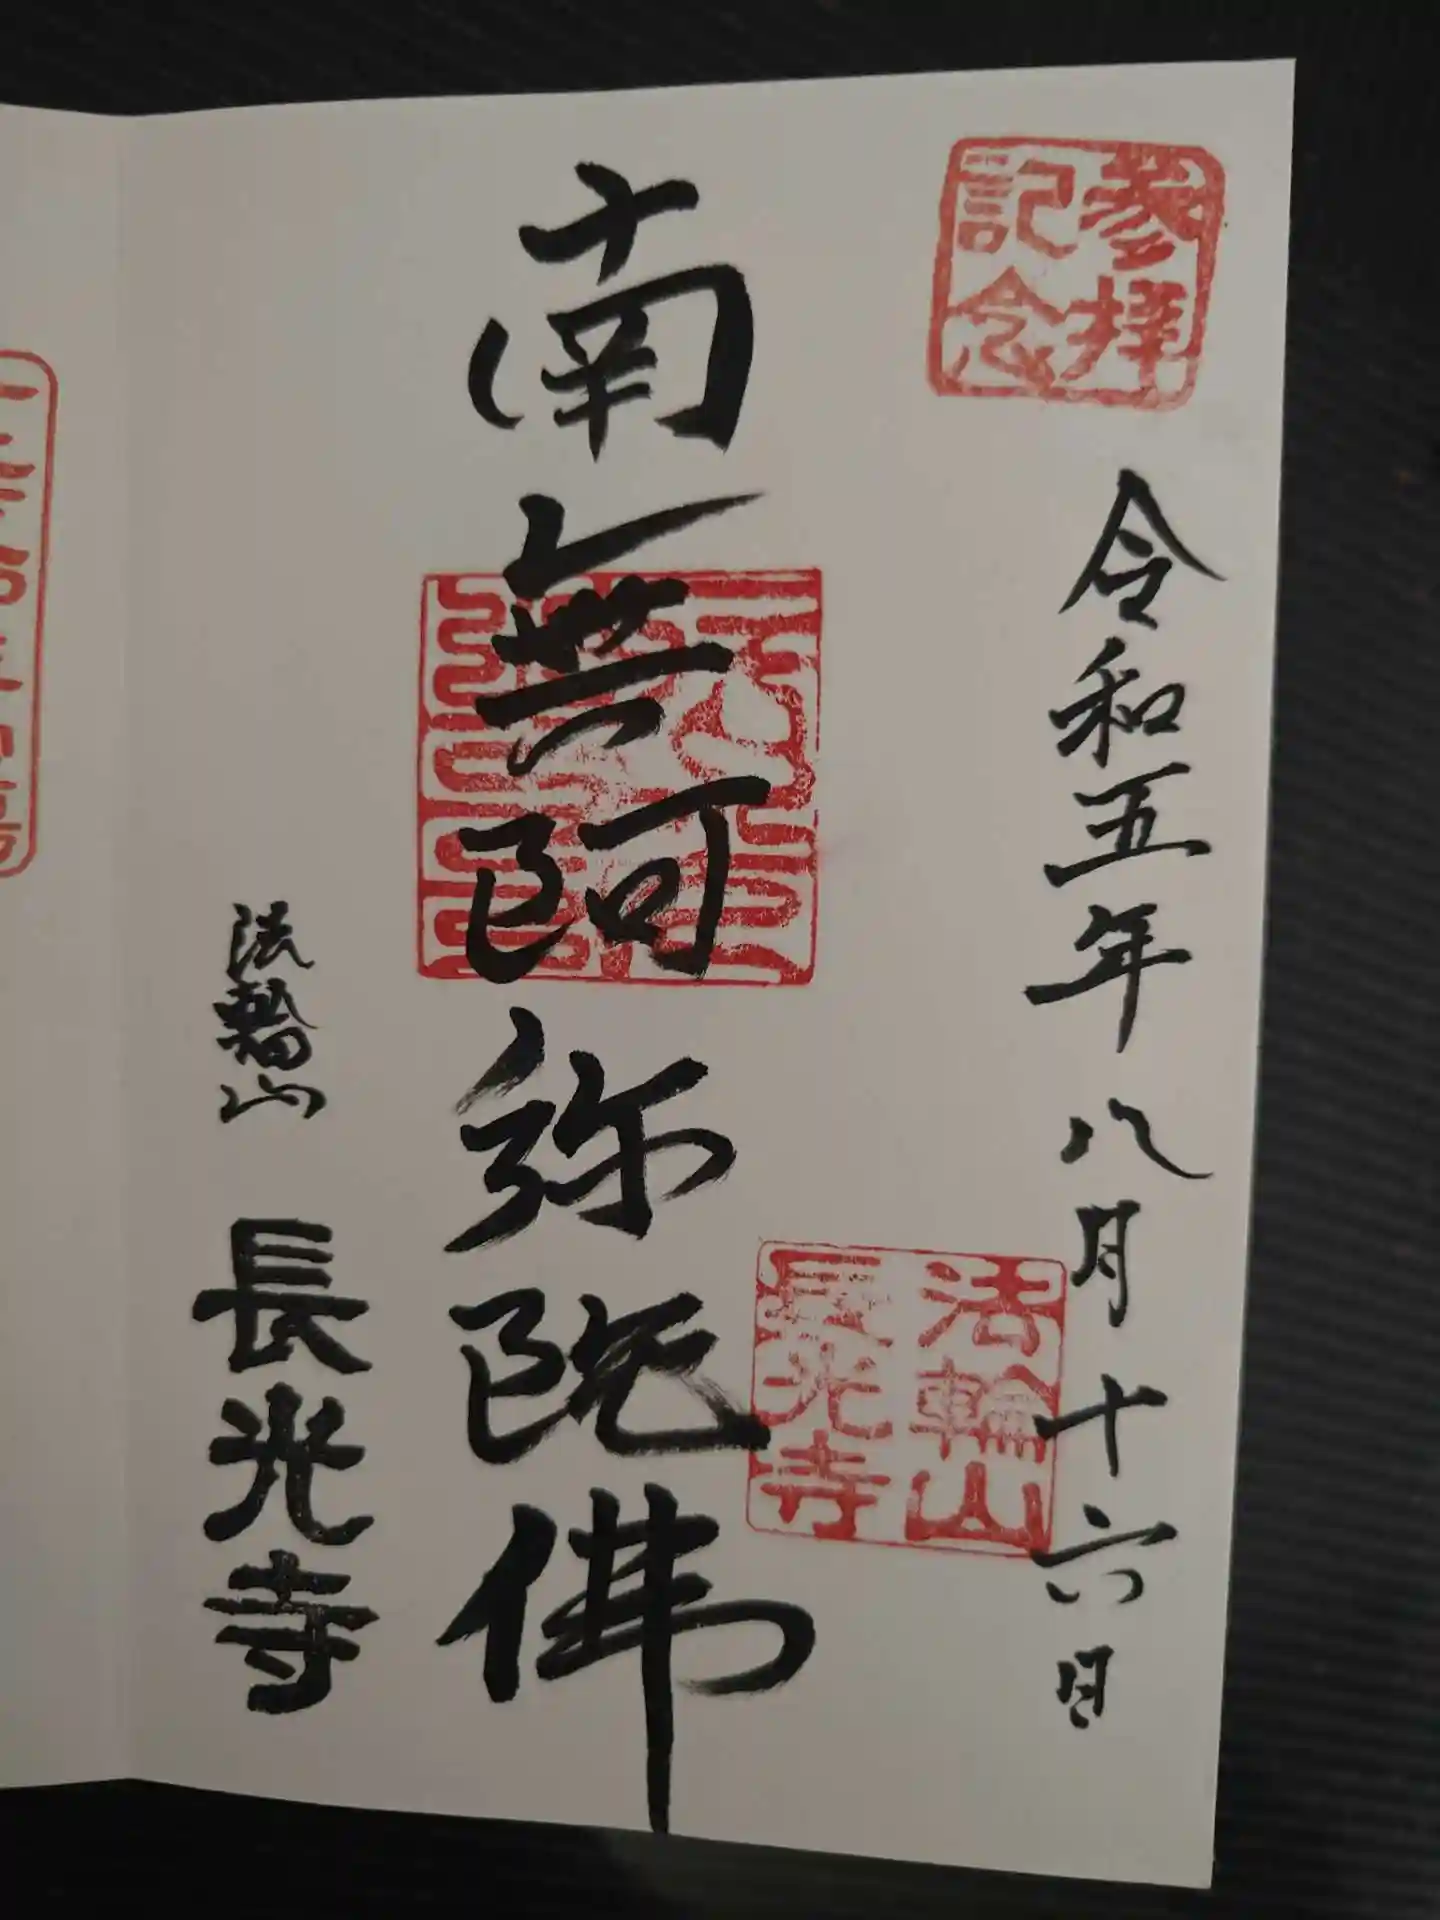 参拝
記念
令和五年八月十六日
法輪山
長光寺
南無阿弥陀佛
法輪山 長光寺